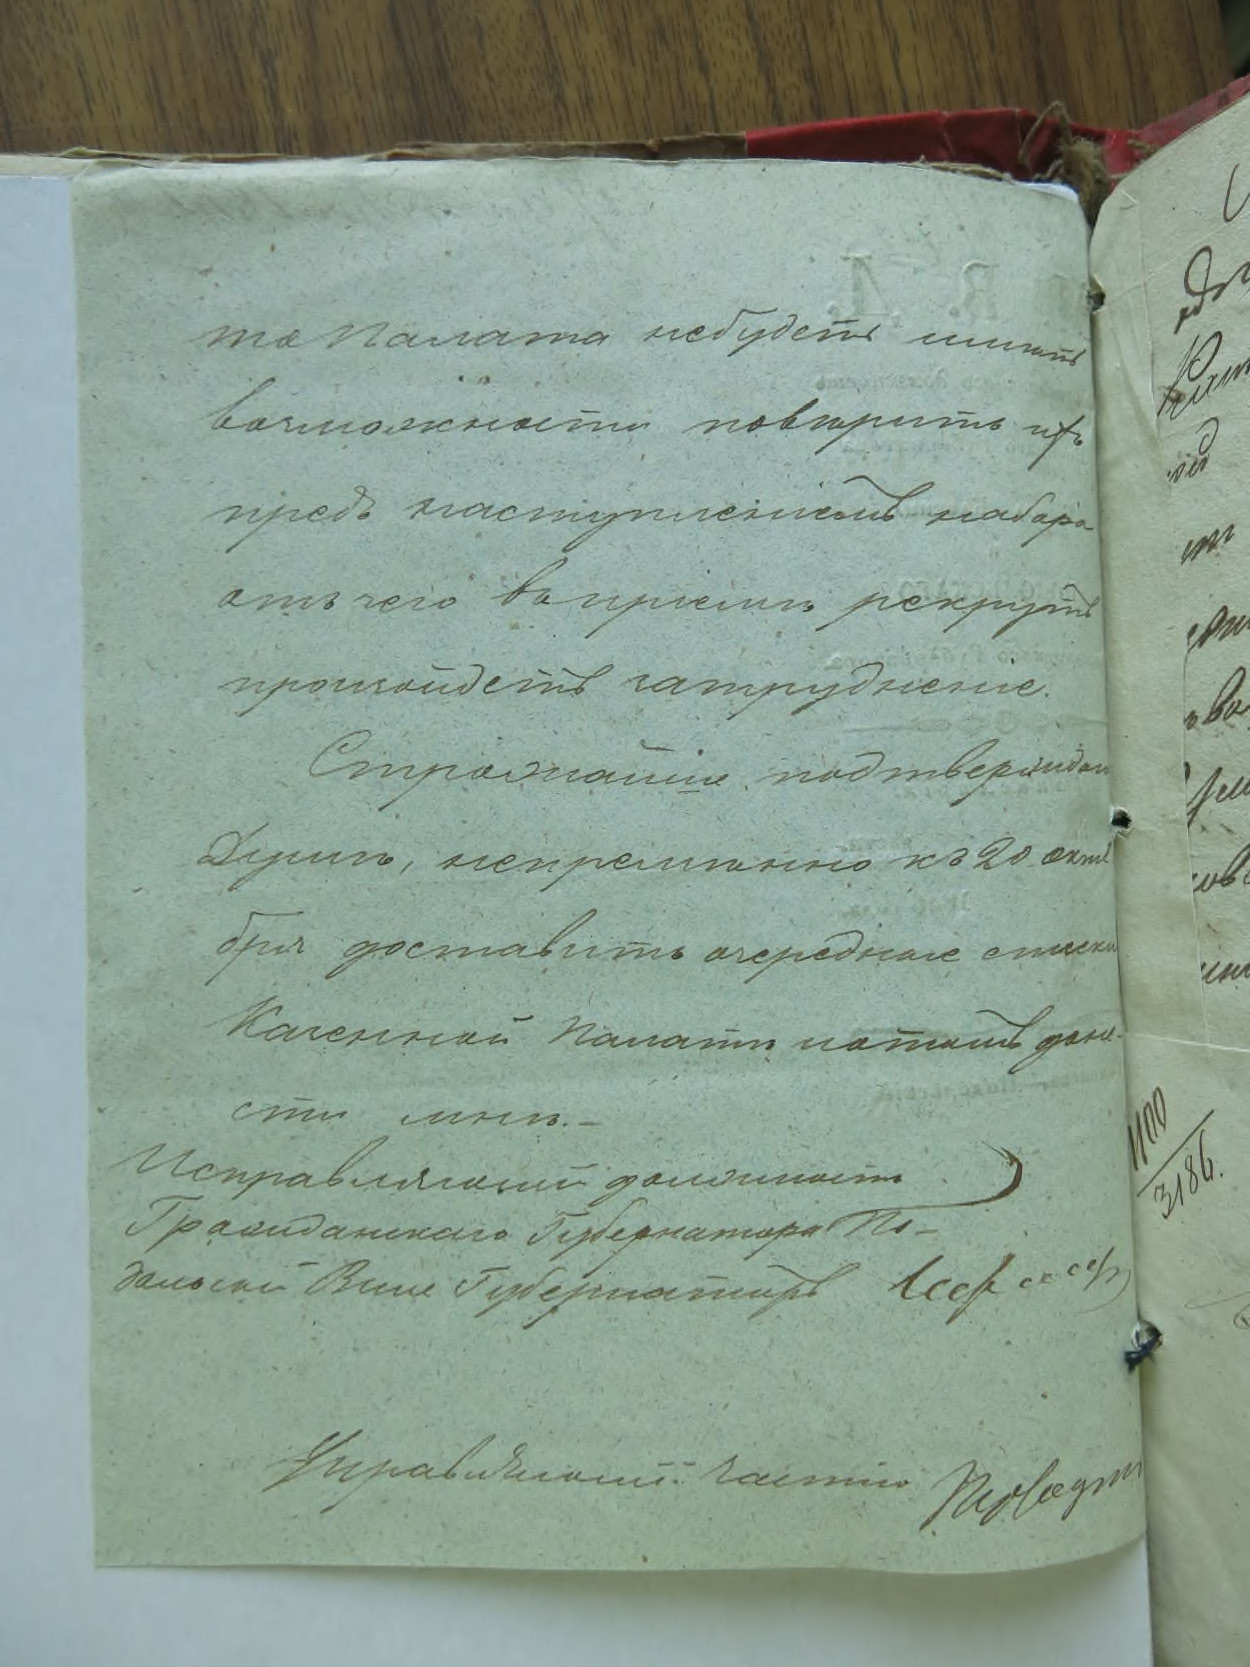 то Палата небудетъ имѣть
возможности повѣрить ихъ
предъ наступленіемъ набора
отъ чего въ пріемѣ рекрутъ
произойдетъ затрудненіе.
Строжайше подтверждаю
Думѣ, непремѣнно къ 20 октя
бря доставить очередные списки
Казенной Палатѣ и о томъ доне-
сти мнѣ.-
Исправляющій должность
Гражданскаго Губернатора По-
дольскій Вице Губернаторъ
Управляющій частію
1100
3186.